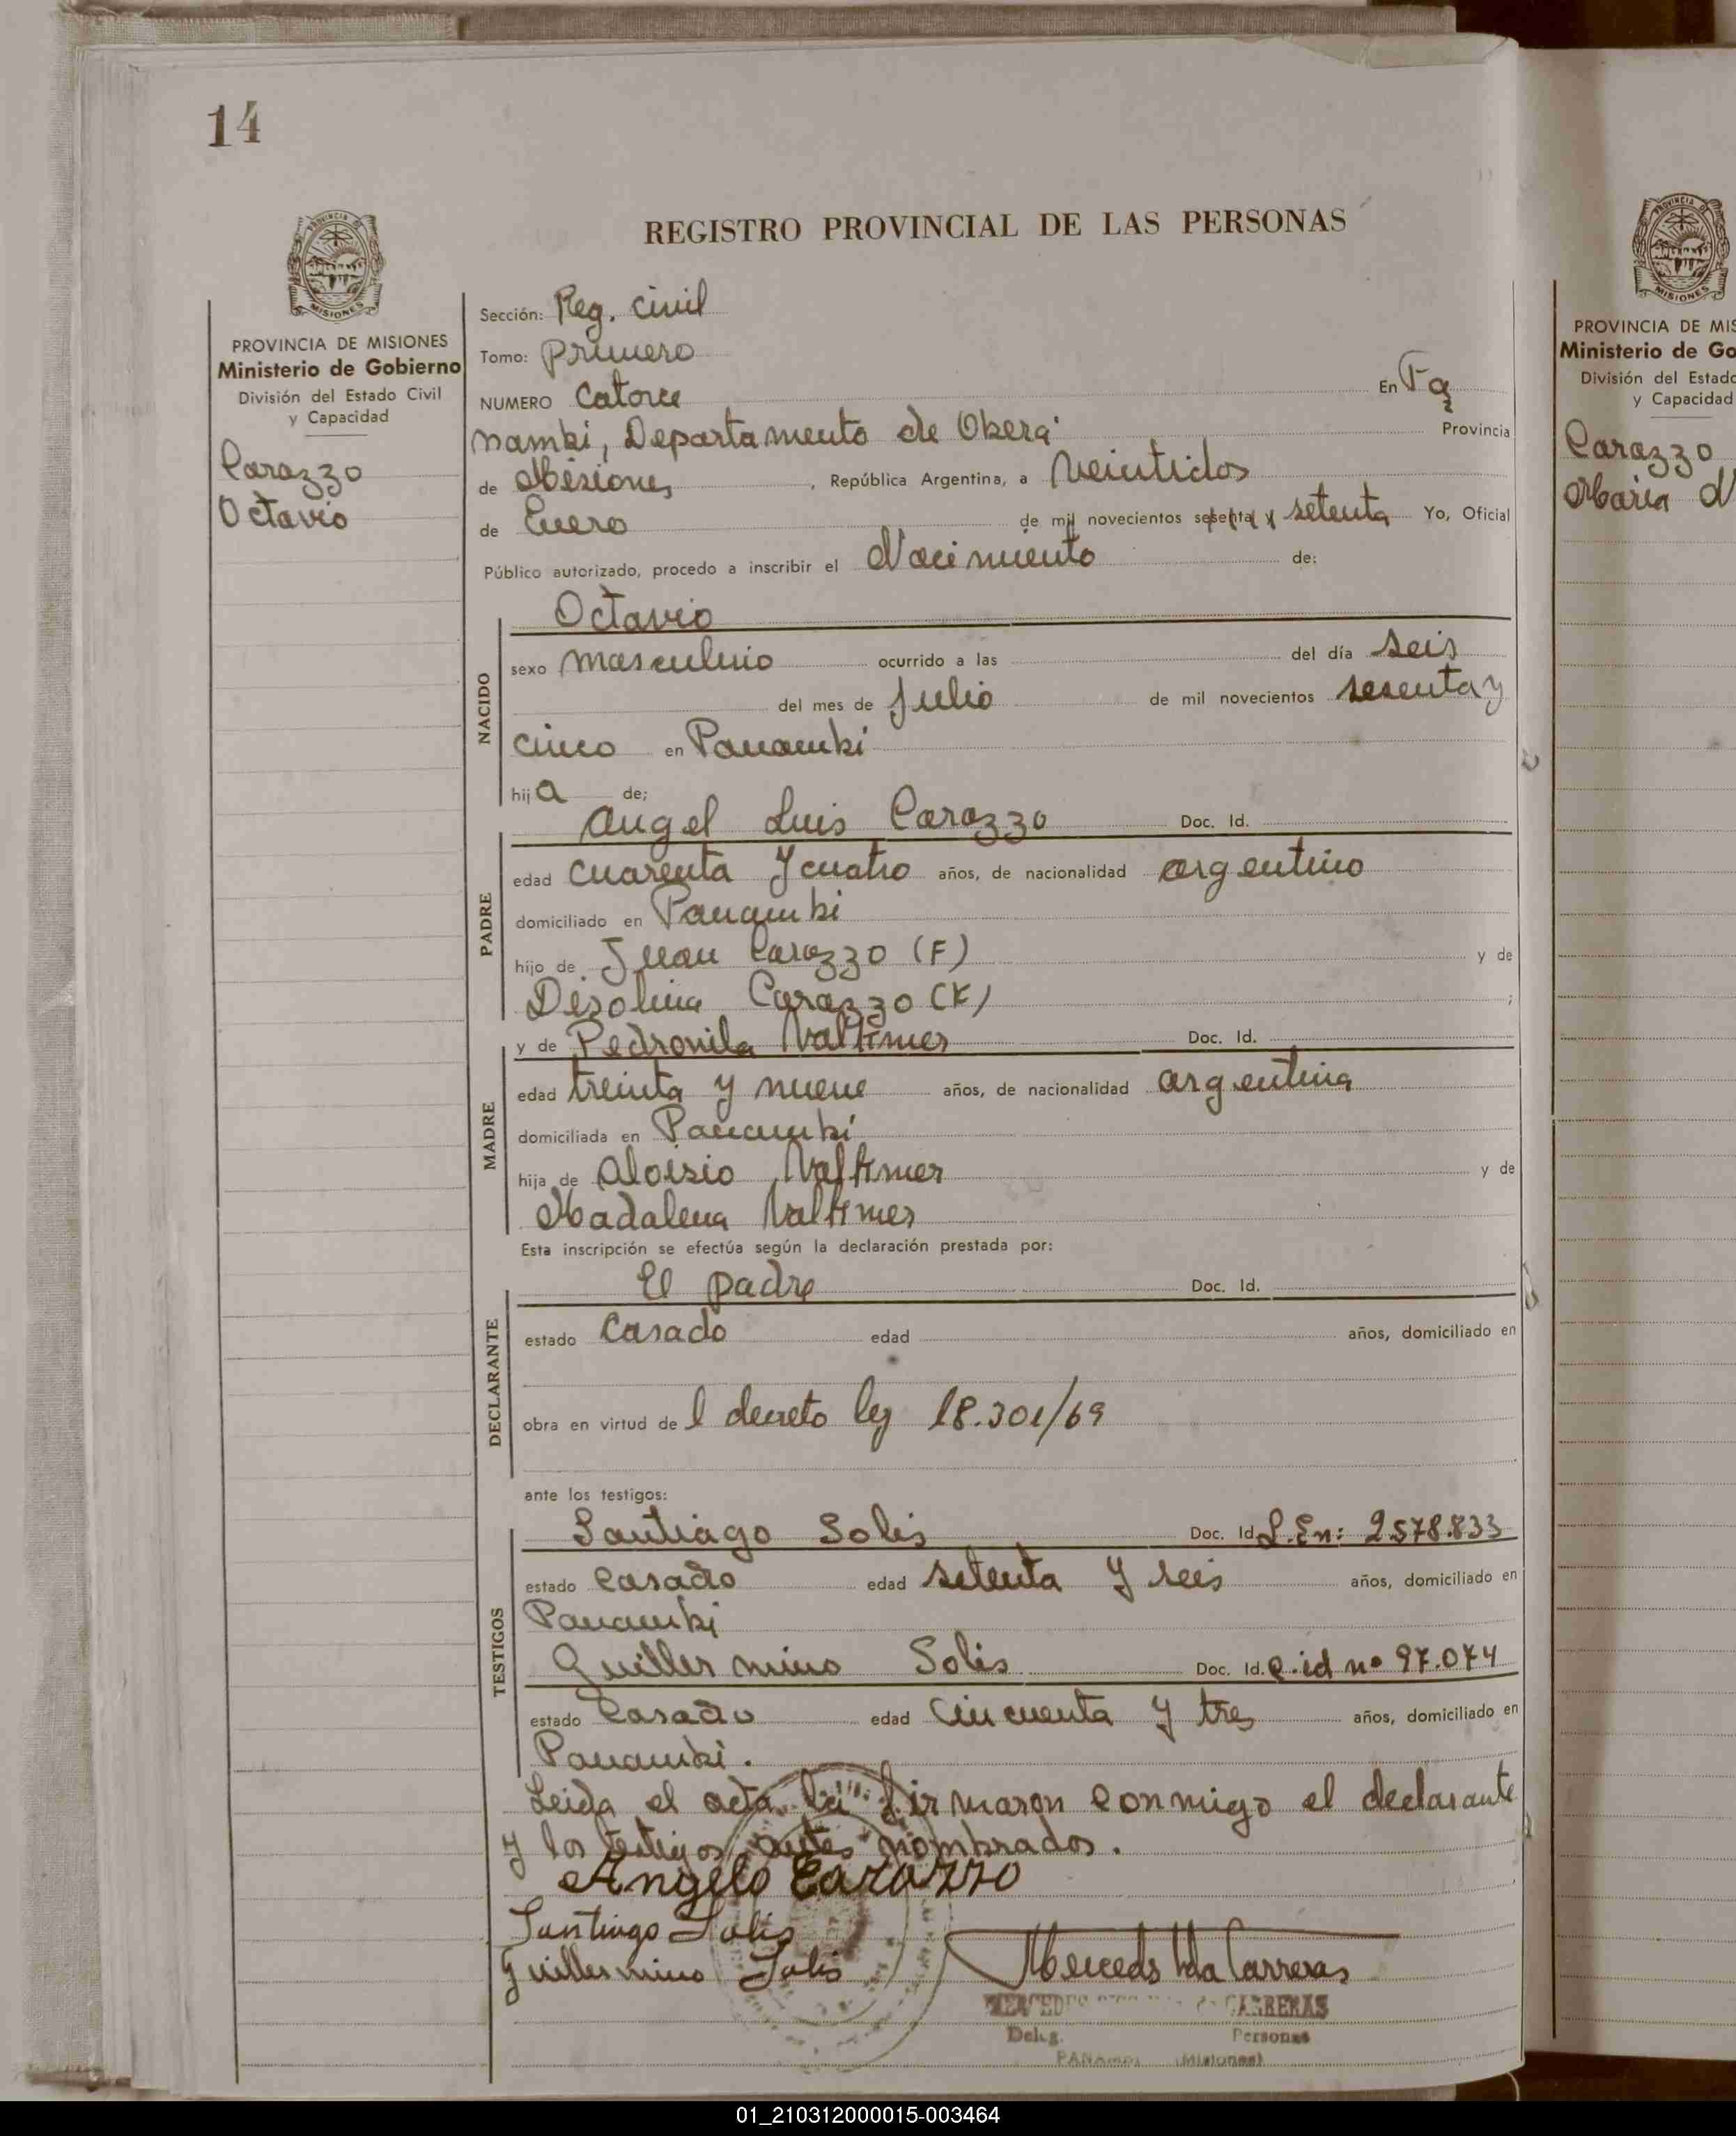 14
REGISTRO PROVINCIAL DE LAS PERSONAS
PROVINCIA DE MISIONES
Ministerio de Gobierno
División del Estado Civil
y Capacidad
Carazzo
Octavio
Sección: Reg. Civil
Tomo: Primero
NUMERO Catorce En Pa
nambi, Departamento de Oberá Provincia
de Misiones, República Argentina, a Veintidos
de Enero de mil novecientos sesenta y setenta Yo, Oficial
Público autorizado, procedo a inscribir el Nacimiento de:
Octavio
NACIDO
sexo masculino ocurrido a las del día seis
del mes de Julio de mil novecientos sesenta y
cinco en Panambi
hija de;
Angel Luis Carazzo Doc. Id.
PADRE
edad cuarenta y cuatro años, de nacionalidad argentino
domiciliado en Panambi
hijo de Juan Carazzo (F) y de
Desolina Carazzo (F) ;
y de Pedronila Valtimer Doc. Id.
MADRE
edad treinta y nueve años, de nacionalidad argentina
domiciliada en Panambi
hija de Aloisio Valtimer y de
Madalena Valtimer
Esta inscripción se efectúa según la declaración prestada por:
El padre Doc. Id.
DECLARANTE
estado Casado edad años, domiciliado en
obra en virtud de l decreto ley 18.301/69
ante los testigos:
Santiago Solis Doc. Id. L.En: 2.578.833
TESTIGOS
estado Casado edad setenta y seis años, domiciliado en
Panambi
Guillermino Solis Doc. Id. C.id nº 97.074
estado Casado edad Cincuenta y tres años, domiciliado en
Panambi.
Leida el acta la firmaron conmigo el declarante
y los testigos antes nombrados.
Angelo Carazzo
Santiago Solis
Guillermino Solis
Mercedes Carreras
MERCEDES CARRERAS
Deleg. Personas
PANAMBI (Misiones)
PROVINCIA DE MIS
Ministerio de Go
División del Estado
y Capacidad
Carazzo
Maria
01_210312000015-003464